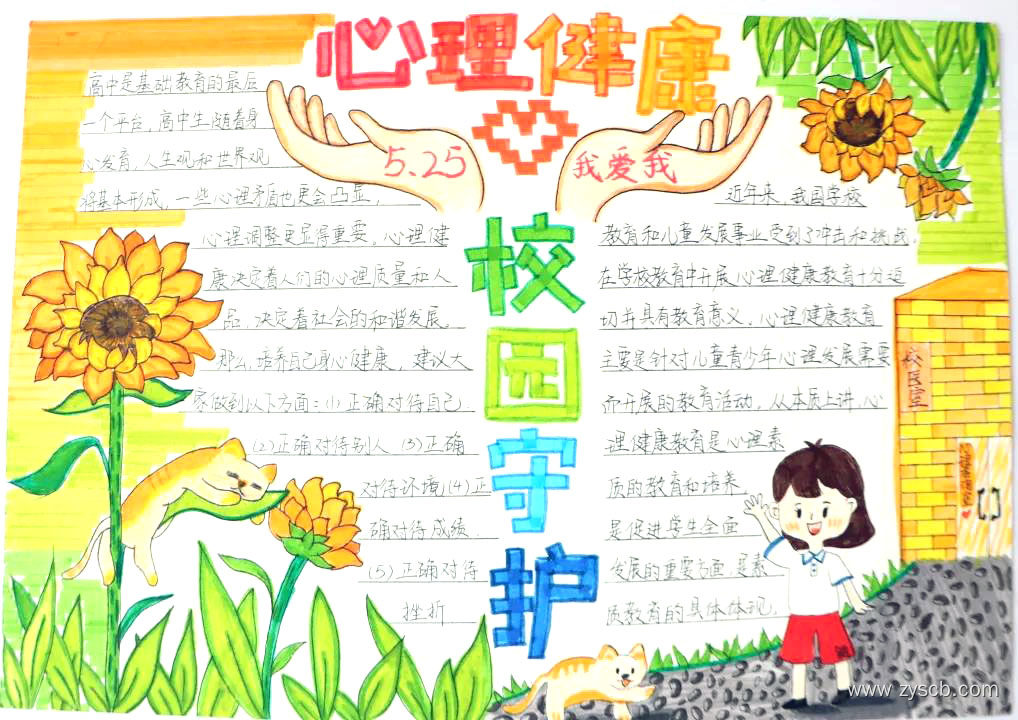 心理健康
5.25
我爱我
校园守护
高中是基础教育的最后
一个平台,高中生随着身
心发育,人生观和世界观
将基本形成,一些心理矛盾也更会凸显,
心理调整更显得重要。心理健
康决定着人们的心理质量和人
品,决定着社会的和谐发展。
那么,培养自己身心健康,建议大
家做到以下方面:(1)正确对待自己
(2)正确对待别人(3)正确
对待环境(4)正
确对待成绩.
(5)正确对待
挫折
近年来,我国学校
教育和儿童发展事业受到了冲击和挑战。
在学校教育中开展心理健康教育十分迫
切并具有教育意义。心理健康教育
主要是针对儿童青少年心理发展需要
而开展的教育活动。从本质上讲,心
理健康教育是心理素
质的教育和培养
是促进学生全面
发展的重要方面,是素
质教育的具体体现.
校医室
www.zyscb.com